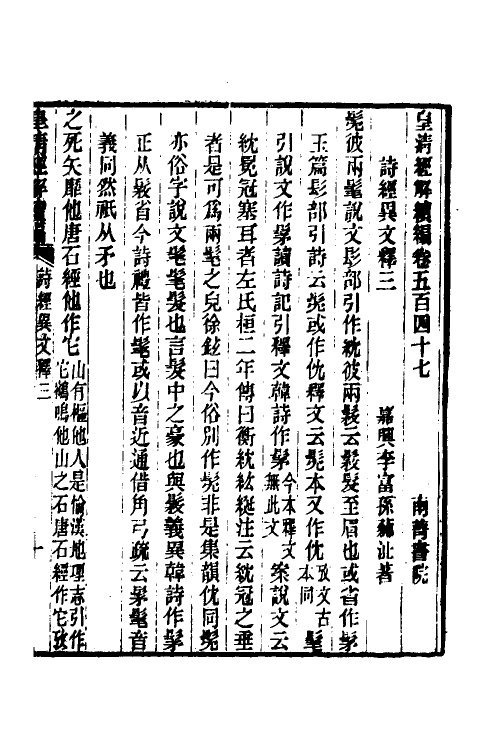 皇清經解續編卷五百四十七 南菁書院
詩經異文釋三 嘉興李富孫薌沚著
髧彼兩髦說文髟部引作紞彼兩髳云髳髮至眉也或省作髳
玉篇髟部引詩云髧或作优釋文云髧本又作优攷文古本同髦
引說文作髳讀詩記引釋文韓詩作髳今本釋文無此文案說文云
紞冕冠塞耳者左氏桓二年傳曰衡紞紘綖注云紞冠之垂
者是可爲兩髦之皃徐鉉曰今俗別作髧非是集韻优同髧
亦俗字說文髦髦髮也言髮中之豪也與髳義異韓詩作髳
正从髳省今詩禮皆作髦或以音近通借角弓疏云髳髦音
義同然祇从矛也
之死矢靡他唐石經他作它山有樞他人是愉漢地理志引作它鶴鳴他山之石唐石經作它攷
皇清經解續編 詩經異文釋三 一